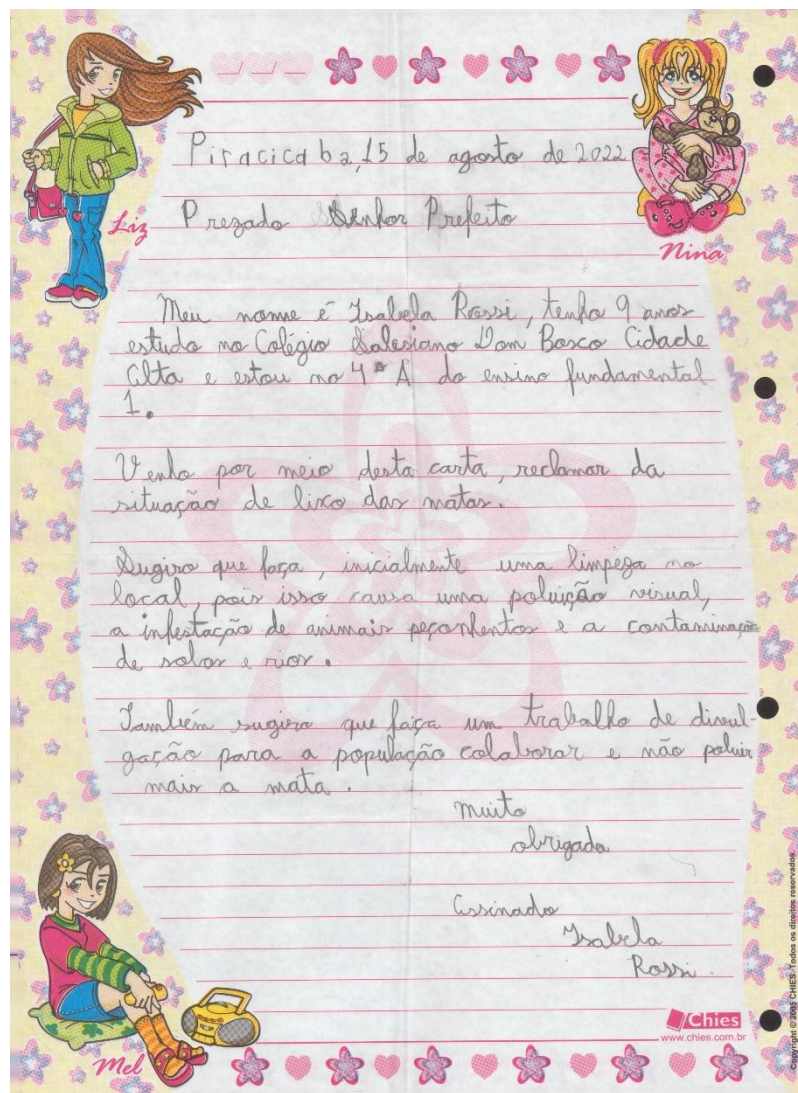 Piracicaba, 15 de agosto de 2022
Liz
Prezado Senhor Prefeito
Nina
Meu nome é Isabela Rossi, tenho 9 anos
estudo no Colégio Salesiano Dom Bosco Cidade
Alta e estou no 4º A do ensino fundamental
1.
Venho por meio desta carta, reclamar da
situação de lixo das matas.
Sugiro que faça, inicialmente uma limpeza no
local, pois isso causa uma poluição visual,
a infestação de animais peçonhentos e a contaminação
de solos e rios.
Também sugiro que faça um trabalho de divul-
gação para a população colaborar e não poluir
mais a mata.
Muito
obrigada
Assinado
Isabela
Rossi.
Chies
www.chies.com.br
Mel
Copyright © 2005 CHIES. Todos os direitos reservados.